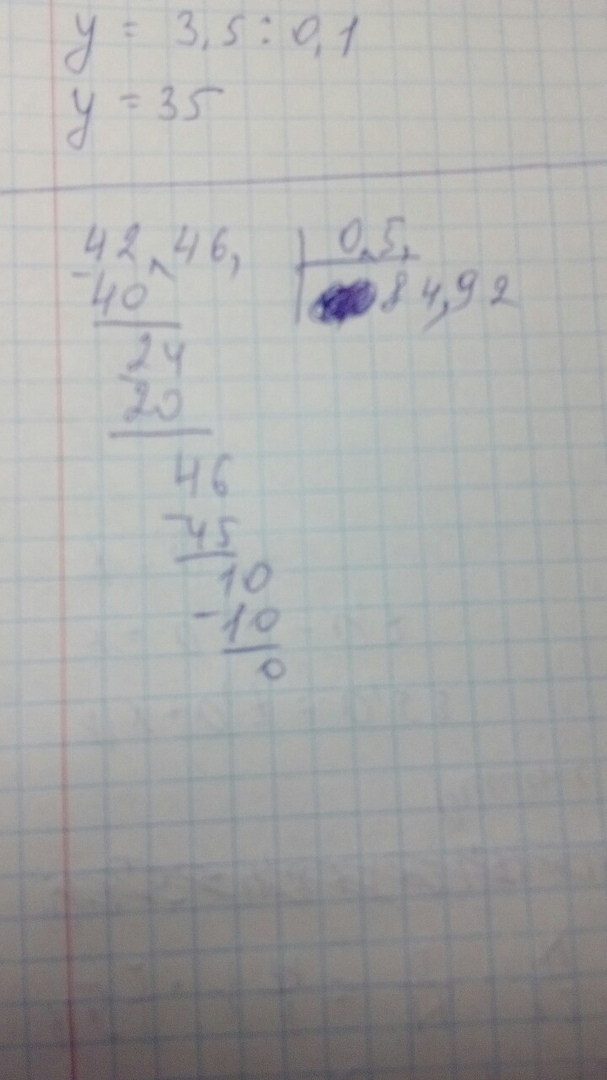 y = 3,5 : 0,1
y = 35
42,46, 0,5,
- 40 84,92
24
- 20
46
- 45
10
- 10
0